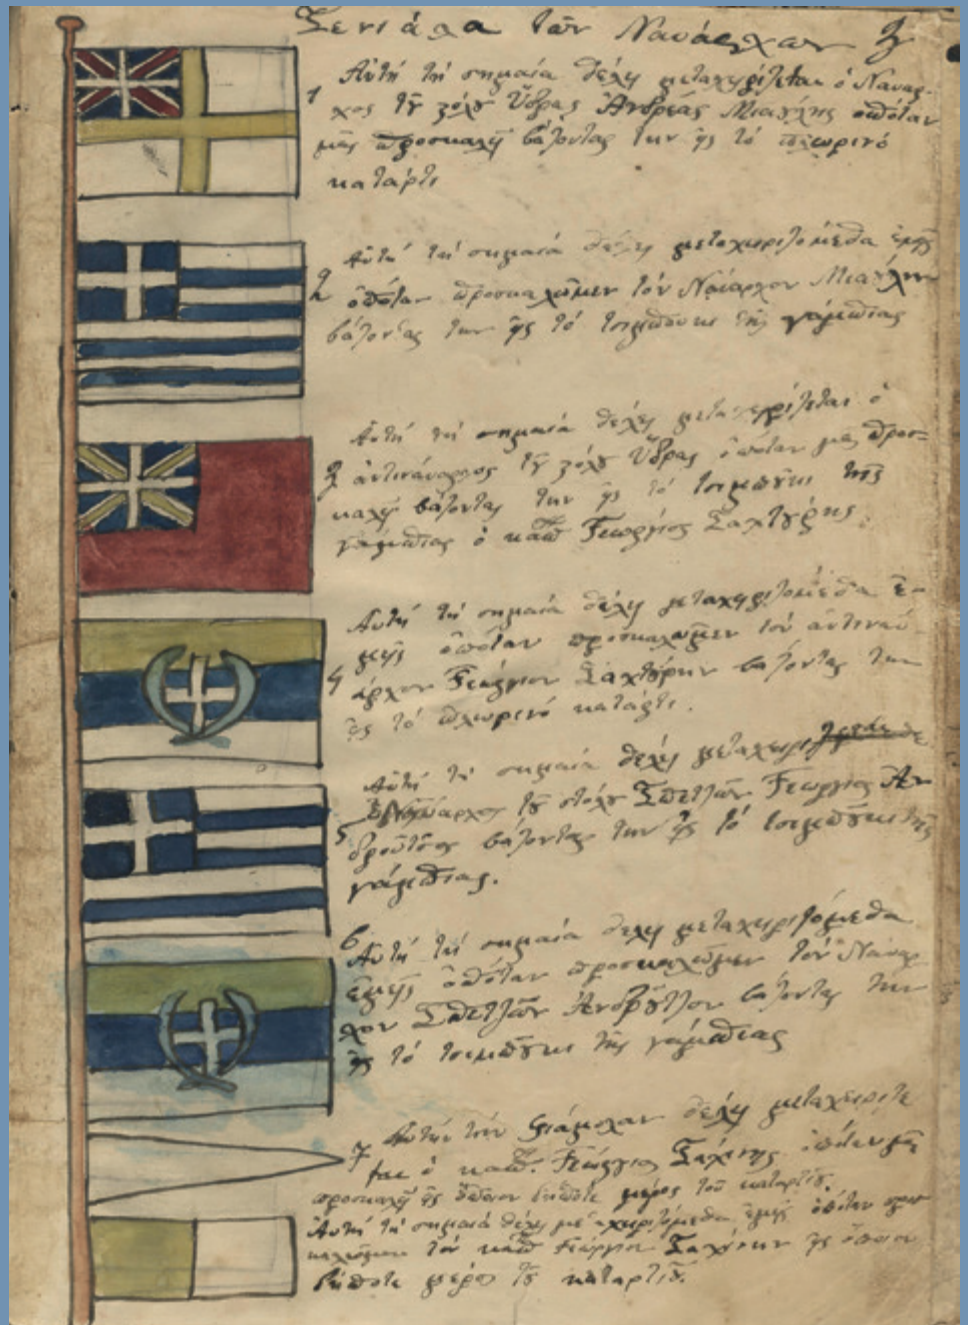 Σενιάλα τῶν Ναυάρχων
1 Αὐτή τή σημαία θέλη μεταχηρίζεται ὁ Ναυαρ-
χος τȣ͂ ςόλȣ Ὕδρας Ἀνδρέας Μιαȣ́λης ὁπόταν
μᾶς προσκαλῆ βάζοντας την ῆς τό πλωρινό
κατάρτι
2 Αὐτή τή σημαιά θέλη μεταχειριζομέθα ἐμῆς
ὁπόταν προσκαλῶμεν τόν Ναύαρχον Μιαȣ́λην
βάζοντας την ῆς τό τσιμπȣ͂κι τῆς γάμπιας
3 Αὐτή τή σημαιά θέλη μεταχερίζεται ὁ
ἀντιναύαρχος τȣ͂ ςόλȣ Ὕδρας ὁπόταν μᾶς προσ-
καλῆ βάζοντας την ῆς τό τσιμπȣ͂κι τῆς
γάμπιας ὁ καπ Γεωργιος Σαχτȣ́ρης
4 Αὐτή τή σημαιά θέλη μεταχηριζομέθα ἐ-
μῆς ὁπόταν προσκαλῶμεν τόν ἀντιναύ-
αρχον Γεώργιον Σαχτȣ́ρην βάζοντας την
ῆς τό πλωρινό κατάρτι.
5 Αὐτή τή σημαιά θέλη
τȣ͂ στόλȣ Σπετζῶν Γεωργιος Ἀν
δροῦτζος βάζοντας την ῆς τό τσιμπȣ͂κι τῆς
γάμπιας.
6 Αὐτή τή σημαιά θέλη μεταχειριζόμεθα
ἐμῆς ὁπόταν προσκαλῶμεν τόν Ναύαρ
χον Σπετζῶν Ἀνδρȣ͂τζον βάζοντας την
ῆς τό τσιμπȣ͂κι τῆς γάμπιας
7 Αὐτήν τήν φιάμολαν θέλη μεταχειρίζε
ται ὁ καπ. Γεώργιος Σαχίνης ὁπόταν μᾶς
προσκαλῆ ῆς ὅποιον δήποτε μέρος τοῦ καταρτιȣ͂.
Αὐτή τή σημαιά θέλη μεταχηριζόμεθα ἐμῆς ὁπόταν προσ
καλῶμεν τόν καπ Γεώργιον Σαχίνην ῆς ὅποιον
δήποτε μέρος τȣ͂ καταρτιȣ͂.